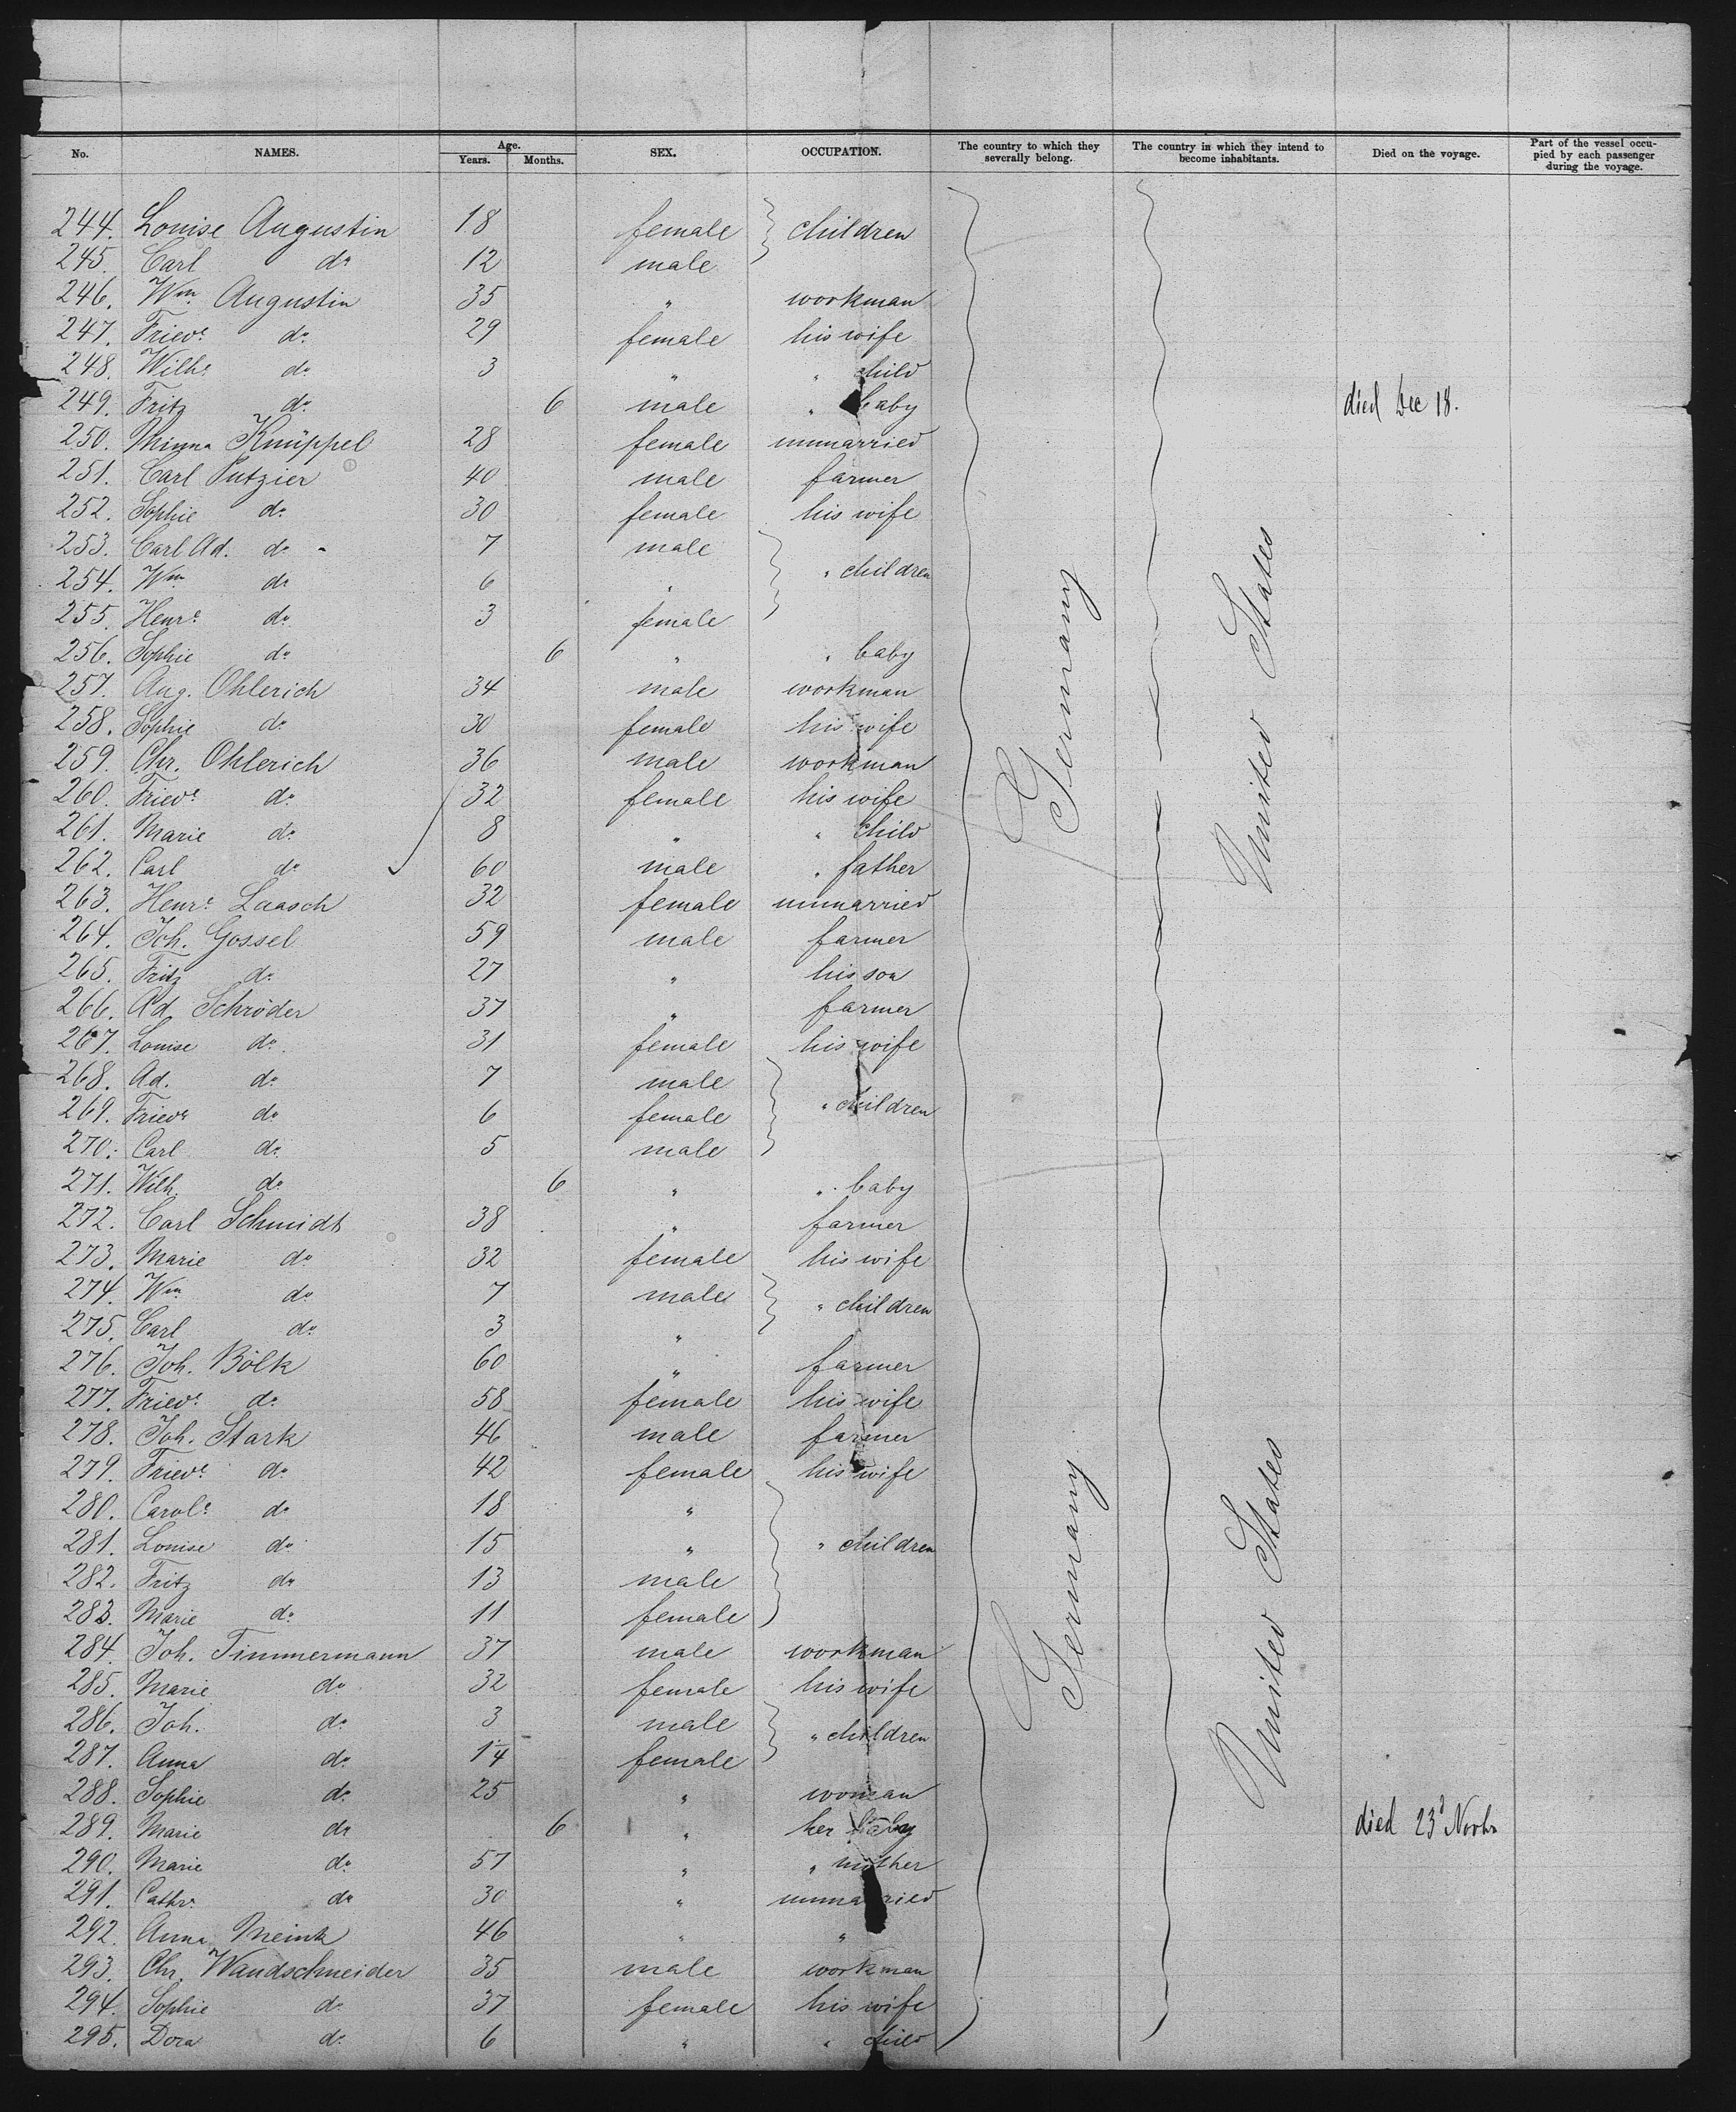 No. NAMES. Age. Years. Months. SEX. OCCUPATION. The country to which they severally belong. The country in which they intend to become inhabitants. Died on the voyage. Part of the vessel occupied by each passenger during the voyage.
244. Louise Augustin 18 female } children
245. Carl do 12 male
246. Wm. Augustin 35 " workman
247. Fried.e do. 29 female his wife
248. Wilh.e do. 3 " " child
249. Fritz do. 6 male " baby died Dec 18.
250. Minna Knüppel 28 female unmarried
251. Carl Putzier 40 male farmer
252. Sophie do. 30 female his wife
253. Carl Ad. do. 7 male
254. Wm do 6 " } " children
255. Henr.e do. 3 female
256. Sophie do. 6 " " baby
257. Aug. Ohlerich 34 male workman
258. Sophie do. 30 female his wife
259. Chr. Ohlerich 36 male workman
260. Fried.e do. 32 female his wife
261. Marie do. 8 " " child
262. Carl do 60 male " father
263. Henr.e Laasch 32 female unmarried
264. Joh. Gossel 59 male farmer
265. Fritz do. 27 " his son
266. Ad. Schröder 37 " farmer
267. Louise do. 31 female his wife
268. Ad. do. 7 male
269. Fried.e do. 6 female } " children
270. Carl do. 5 male
271. Wilh. do. 6 " " baby
272. Carl Schmidt 38 " farmer
273. Marie do. 32 female his wife
274. Wm. do. 7 male } " children
275. Carl do. 3 "
276. Joh. Bölk 60 " farmer
277. Fried.e do. 58 female his wife
278. Joh. Stark 46 male farmer
279. Fried.e do. 42 female his wife
280. Carol.e do. 18 "
281. Louise do. 15 " } " children
282. Fritz do 13 male
283. Marie do. 11 female
284. Joh. Timmermann 37 male workman
285. Marie do. 32 female his wife
286. Joh. do. 3 male } " children
287. Anna do. 1 4 female
288. Sophie do. 25 " woman
289. Marie do 6 " her baby died 23d Novbr
290. Marie do. 57 " " mother
291. Cathr. do 30 " unmarried
292. Anna Meink 46 " "
293. Chr. Wandschneider 35 male workman
294. Sophie do. 37 female his wife
295. Dora do. 6 " " child
Germany
United States
Germany
United States